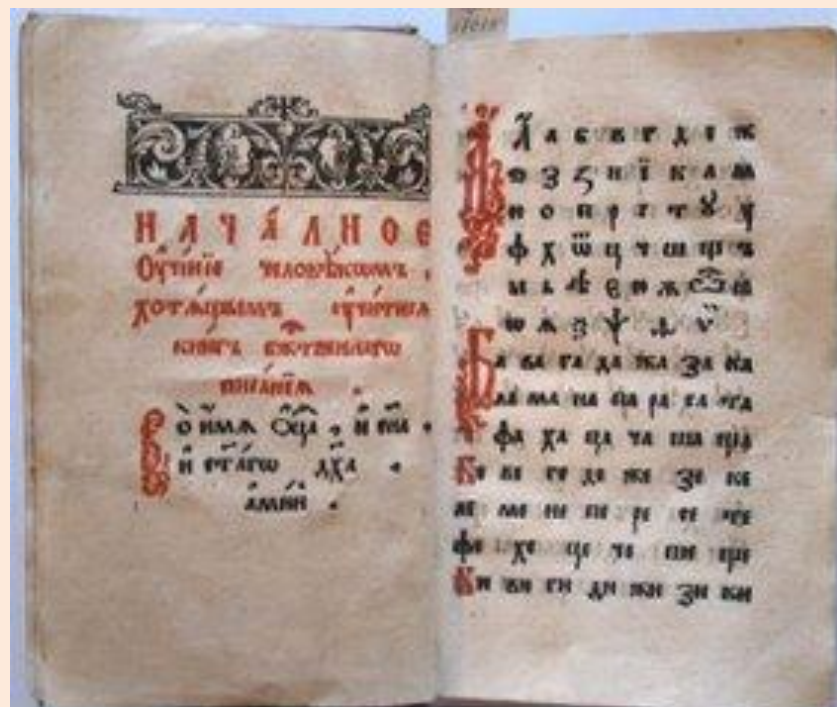 НАЧА́ЛНОЕ
Оу҆че́нїе человѣ́кѡмъ ,
хотѧ́щымъ оу҆чи́тисѧ
кни́гъ бж҃е́твеннагѡ
писа́нїѧ .
Во и҆́мѧ Ѻ҆ц҃а̀ , и҆ сн҃а ,
и҆ ст҃а́гѡ дх҃а ,
а҆ми́нь .
А а б в г д е ж
ѕ з ꙁ и ї к л м
н о п р с т ꙋ у
ф х ѿ ц ч ш щ ъ
ы ь ѣ є ю ж ѽ ꙗ
ѡ ѧ ѯ ѱ ѳ ѵ
Ба ва га да жа за ка
ла ма на па ра са та
фа ха ца ча ша ща
Бе ве ге де же зе ке
ле ме не пе ре се те
фе хе це че ше ще
Би ви ги ди жи зи ки